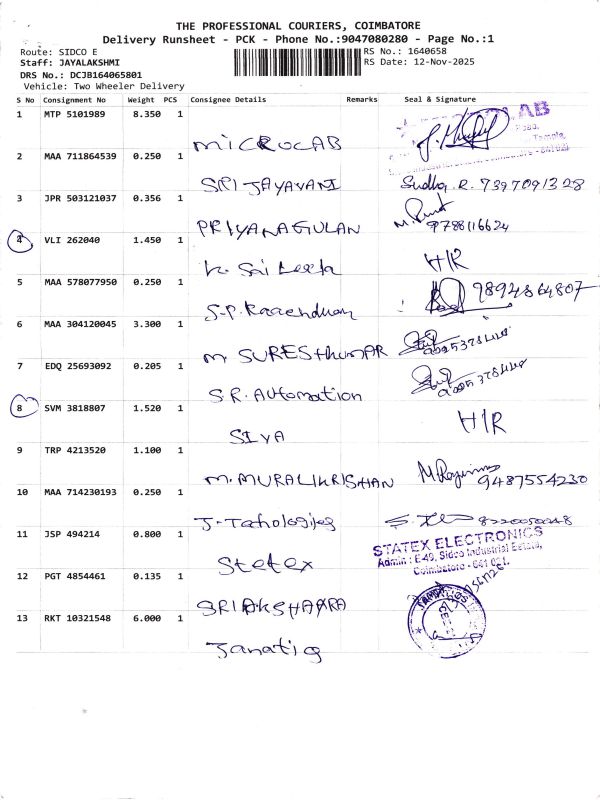 THE PROFESSIONAL COURIERS, COIMBATORE
Delivery Runsheet - PCK - Phone No.:9047080280 - Page No.:1
Route: SIDCO E
RS No.: 1640658
Staff: JAYALAKSHMI
RS Date: 12-Nov-2025
DRS No.: DCJB164065801
Vehicle: Two Wheeler Delivery
S No Consignment No Weight PCS Consignee Details Remarks Seal & Signature
1 MTP 5101989 8.350 1
MICROLAB
2 MAA 711864539 0.250 1
SRI JAYAVANI Sudha R. 7397091328
3 JPR 503121037 0.356 1
PRIYANAGULAN 9788116624
4 VLI 262040 1.450 1
K. Sai Leela H/R
5 MAA 578077950 0.250 1
S.P. 9894864807
6 MAA 304120045 3.300 1
M SURESHKUMAR
7 EDQ 25693092 0.205 1
S.R. Automation
8 SVM 3818807 1.520 1
SIVA H/R
9 TRP 4213520 1.100 1
M. MURALIKRISHAN 9487554230
10 MAA 714230193 0.250 1
J-Tahologies
11 JSP 494214 0.800 1
STATEX ELECTRONICS
Admin : E-49, Sidco Industrial Estate,
Coimbatore - 641 021.
Statex
12 PGT 4854461 0.135 1
SRI AKSHAYRA
13 RKT 10321548 6.000 1
Janatig